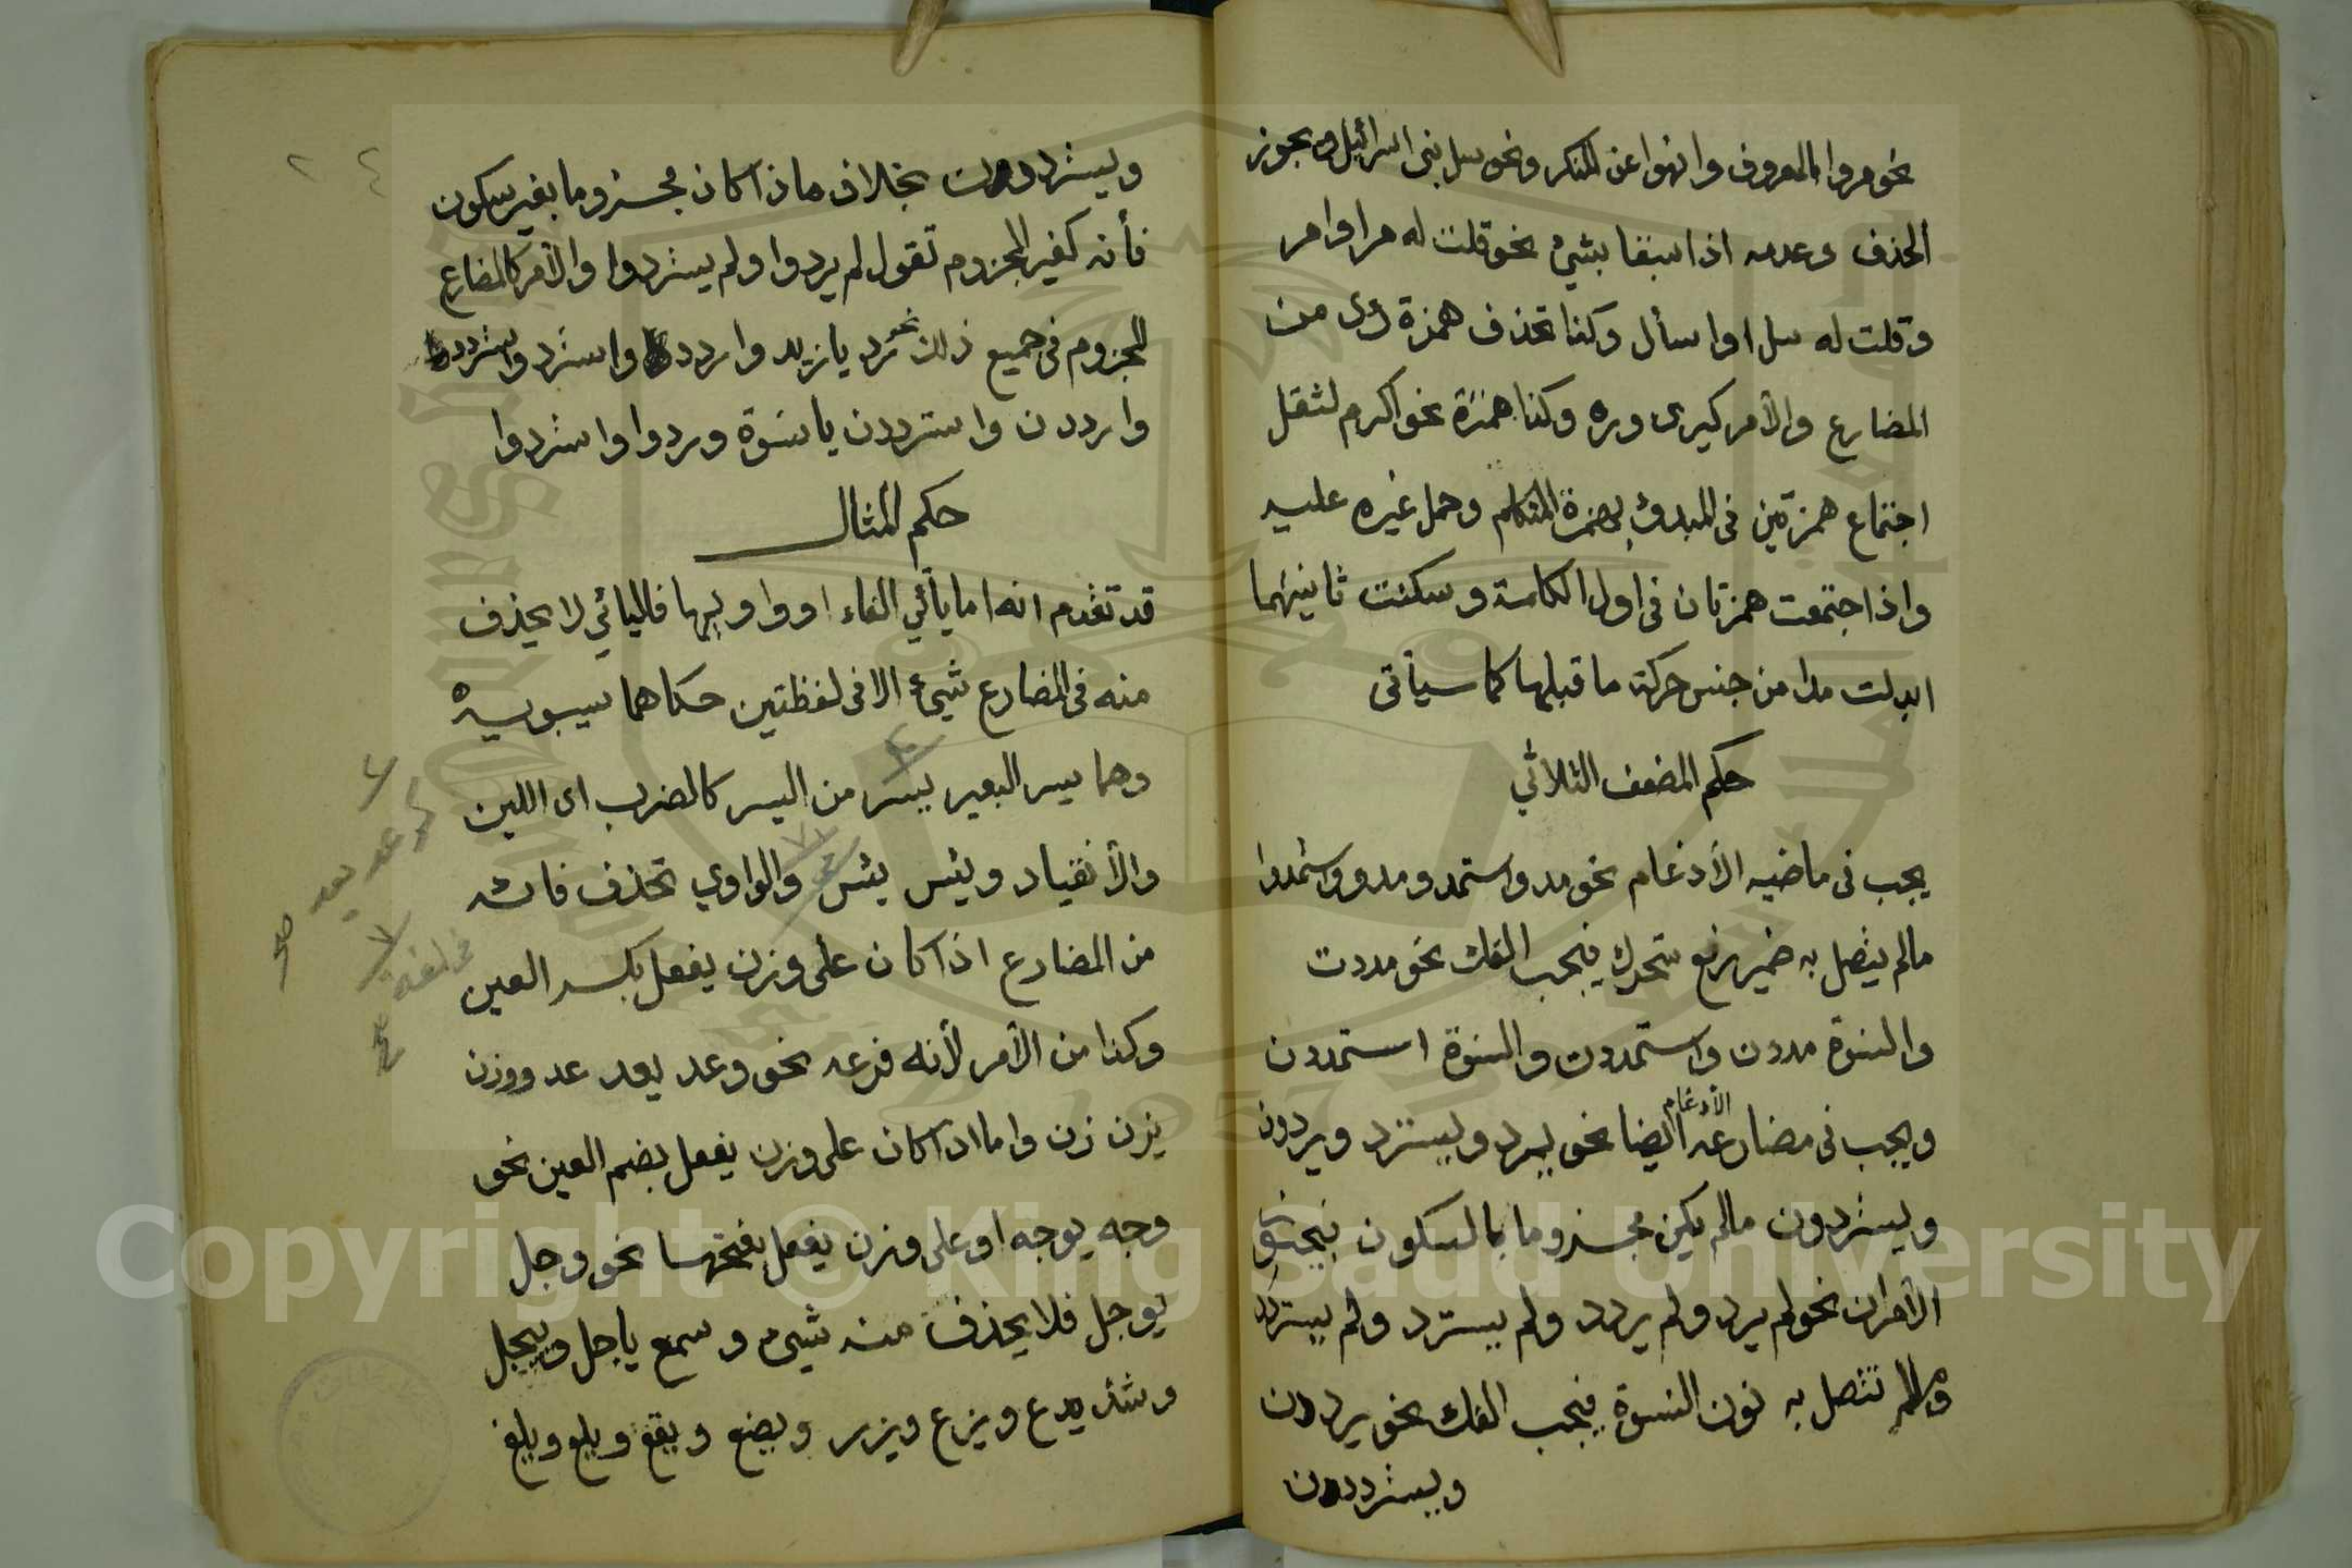 نحو مروا بالمعروف وانهوا عن المنكر ونحو سل بنى اسرائيل ويجوز
الحذف وعدمه اذا سبقا بشئ نحو قلت له مر او امر
وقلت له سل او اسأل وكذا تحذف همزة رأى من
المضارع والأمر كيرى وره وكذا همزة نحو اكرم لثقل
اجتماع همزتين فى المبدؤ بهمزة المتكلم وحمل غيره عليه
واذا اجتمعت همزتان فى اول الكلمة وسكنت ثانيتهما
ابدلت مدا من جنس حركة ما قبلها كما سيأتى
حكم المضعف الثلاثي
يجب فى ماضيه الأدغام نحو مد واستمد ومدو واستمدوا
مالم يتصل به ضمير رفع متحرك فيجب الفك نحو مددت
والنسوة مددن واستمددت والنسوة استمددن
ويجب فى مضارعه الأدغام ايضا نحو يرد ويسترد ويردون
ويستردون مالم يكن مجزوما بالسكون فيجوز
الأمران نحو لم يرد ولم يردد ولم يسترد ولم يستردد
ومالم تتصل به نون النسوة فيجب الفك نحو يرددن
ويسترددن
ويسترددن بخلاف ما اذا كان مجزوما بغير سكون
فأنه كغير المجزوم تقول لم يردوا ولم يستردوا والأمر كالمضارع
المجزوم فى جميع ذلك نحو رد يا زيد واردد واسترد واستردد
وارددن واسترددن يا نسوة وردوا واستردوا
حكم المثال
قد تقدم انه اما يأئي الفاء او واويها فاليائي لا يحذف
منه فى المضارع شيئ الا فى لفظتين حكاهما سيبويه
وهما يسر البعير يسر من اليسر كالضرب اى اللين
والأنقياد ويئس يئس والواوي تحذف فائه
من المضارع اذا كان على وزن يفعل بكسر العين
وكذا من الأمر لأنه فرعه نحو وعد يعد عد ووزن
يزن زن واما اذا كان على وزن يفعل بضم العين نحو
وجه يوجه او على وزن يفعل بفتحها نحو وجل
يوجل فلا يحذف منه شيئ وسمع ياجل وييجل
وشذ يدع ويزع ويذر ويضع ويقع ويلع ويلغ
Copyright © King Saud University
1957